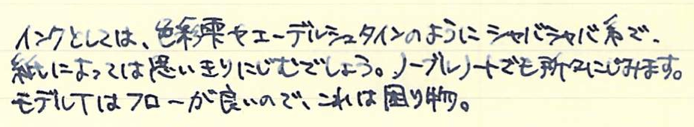 インクとしては、色彩雫やエーデルシュタインのようにシャバシャバ系で、
紙によっては思いきりにじむでしょう。ノーブルノートでも所々にじみます。
モデルTはフローが良いので、これは困り物。